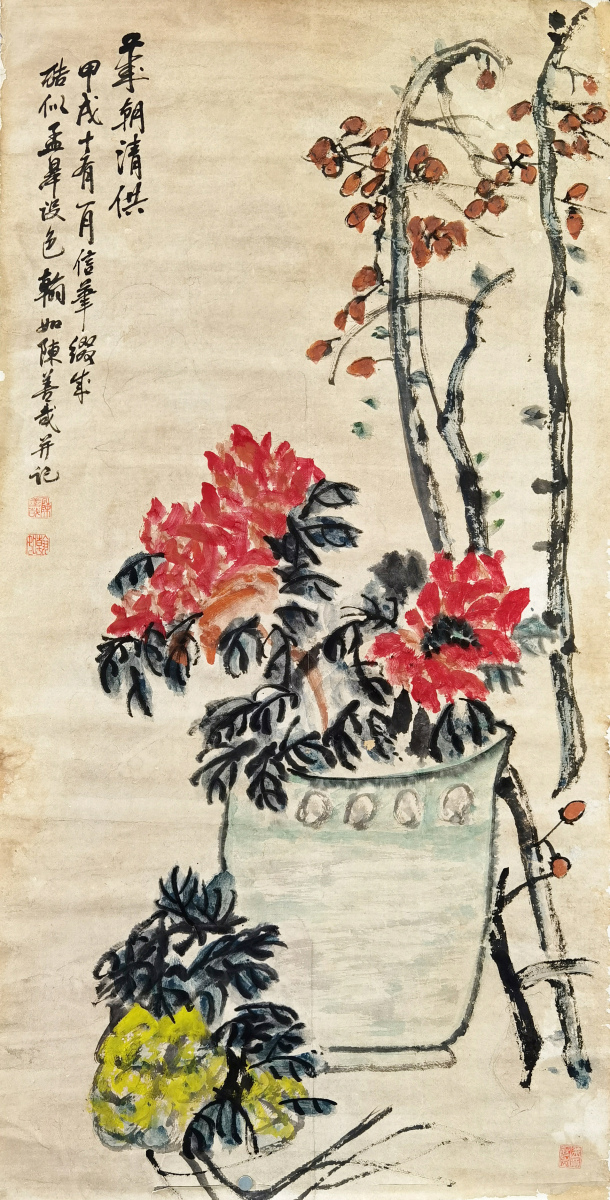 歲朝清供
甲戌十有一月信筆綴成
酷似孟皋設色翰如陳善哉并記